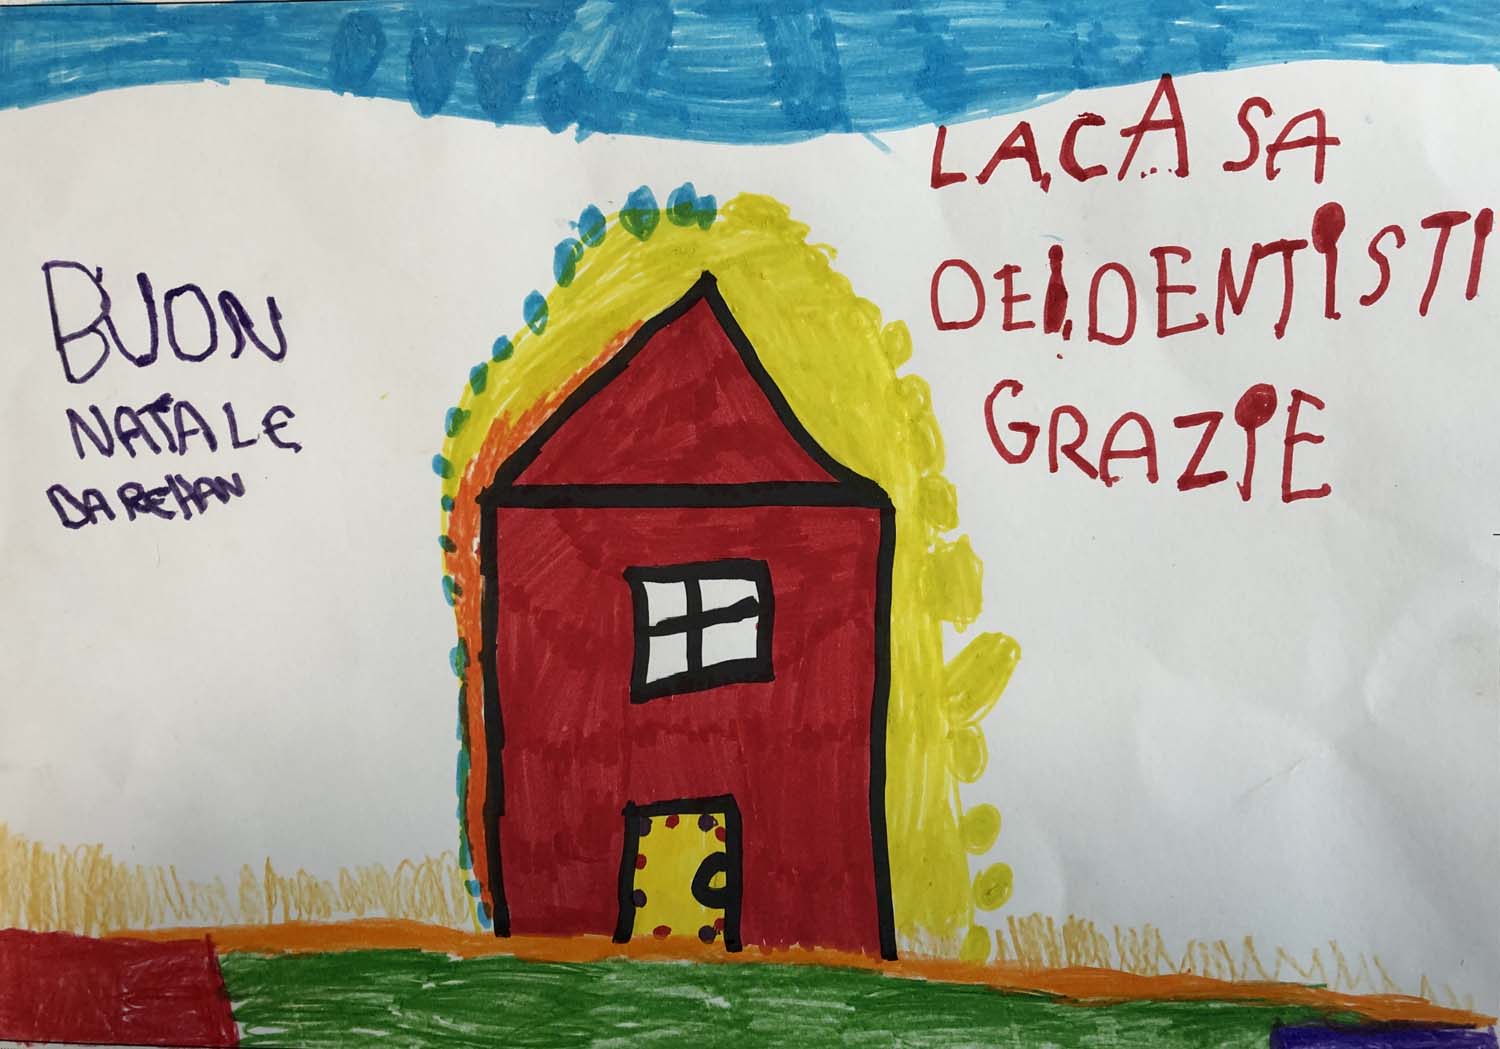 BUON
NATALE
DA REHAN
LA CASA
DEI DENTISTI
GRAZIE